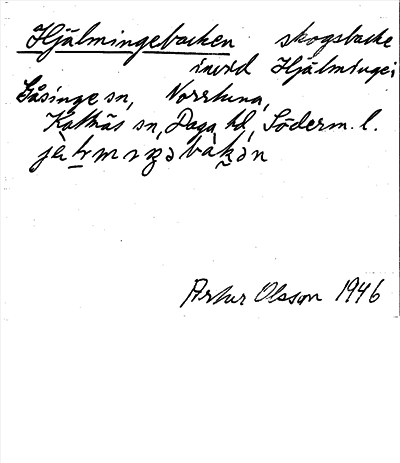 Hjälmingebacken skogsbacke
invid Hjälminge i
Gåsinge sn, Norrtuna,
Kattnäs sn, Daga hd, Söderm. l.
Artur Olsson 1946